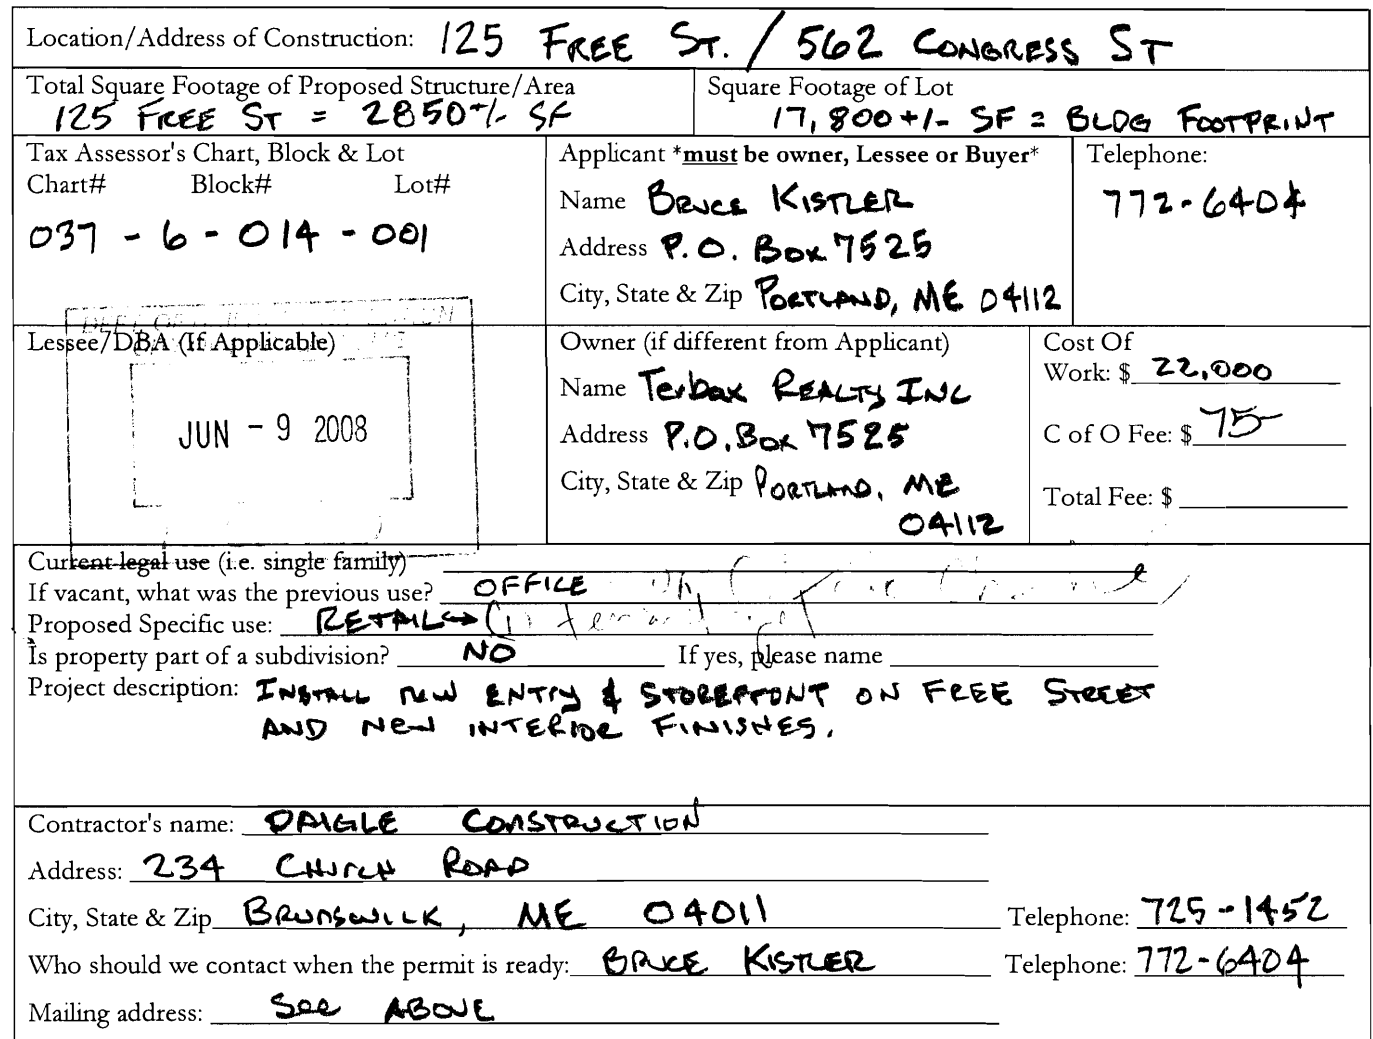 Location/Address of Construction: 125 FREE ST. / 562 CONGRESS ST
Total Square Footage of Proposed Structure/Area
125 FREE ST = 2850 +/- SF
Square Footage of Lot
17,800 +/- SF = BLDG FOOTPRINT
Tax Assessor's Chart, Block & Lot
Chart# Block# Lot#
037 - 6 - 014 - 001
Applicant *must be owner, Lessee or Buyer*
Name BRUCE KISTLER
Address P.O. Box 7525
City, State & Zip PORTLAND, ME 04112
Telephone:
772-6404
Lessee/DBA (If Applicable)
JUN - 9 2008
Owner (if different from Applicant)
Name Terbax REALTY INC
Address P.O. Box 7525
City, State & Zip PORTLAND, ME
04112
Cost Of
Work: $ 22,000
C of O Fee: $ 75-
Total Fee: $
Current legal use (i.e. single family)
If vacant, what was the previous use? OFFICE
Proposed Specific use: RETAIL
Is property part of a subdivision? NO If yes, please name
Project description: INSTALL NEW ENTRY & STOREFRONT ON FREE STREET
AND NEW INTERIOR FINISHES.
Contractor's name: DAIGLE CONSTRUCTION
Address: 234 CHURCH ROAD
City, State & Zip BRUNSWICK, ME 04011 Telephone: 725-1452
Who should we contact when the permit is ready: BRUCE KISTLER Telephone: 772-6404
Mailing address: See ABOVE